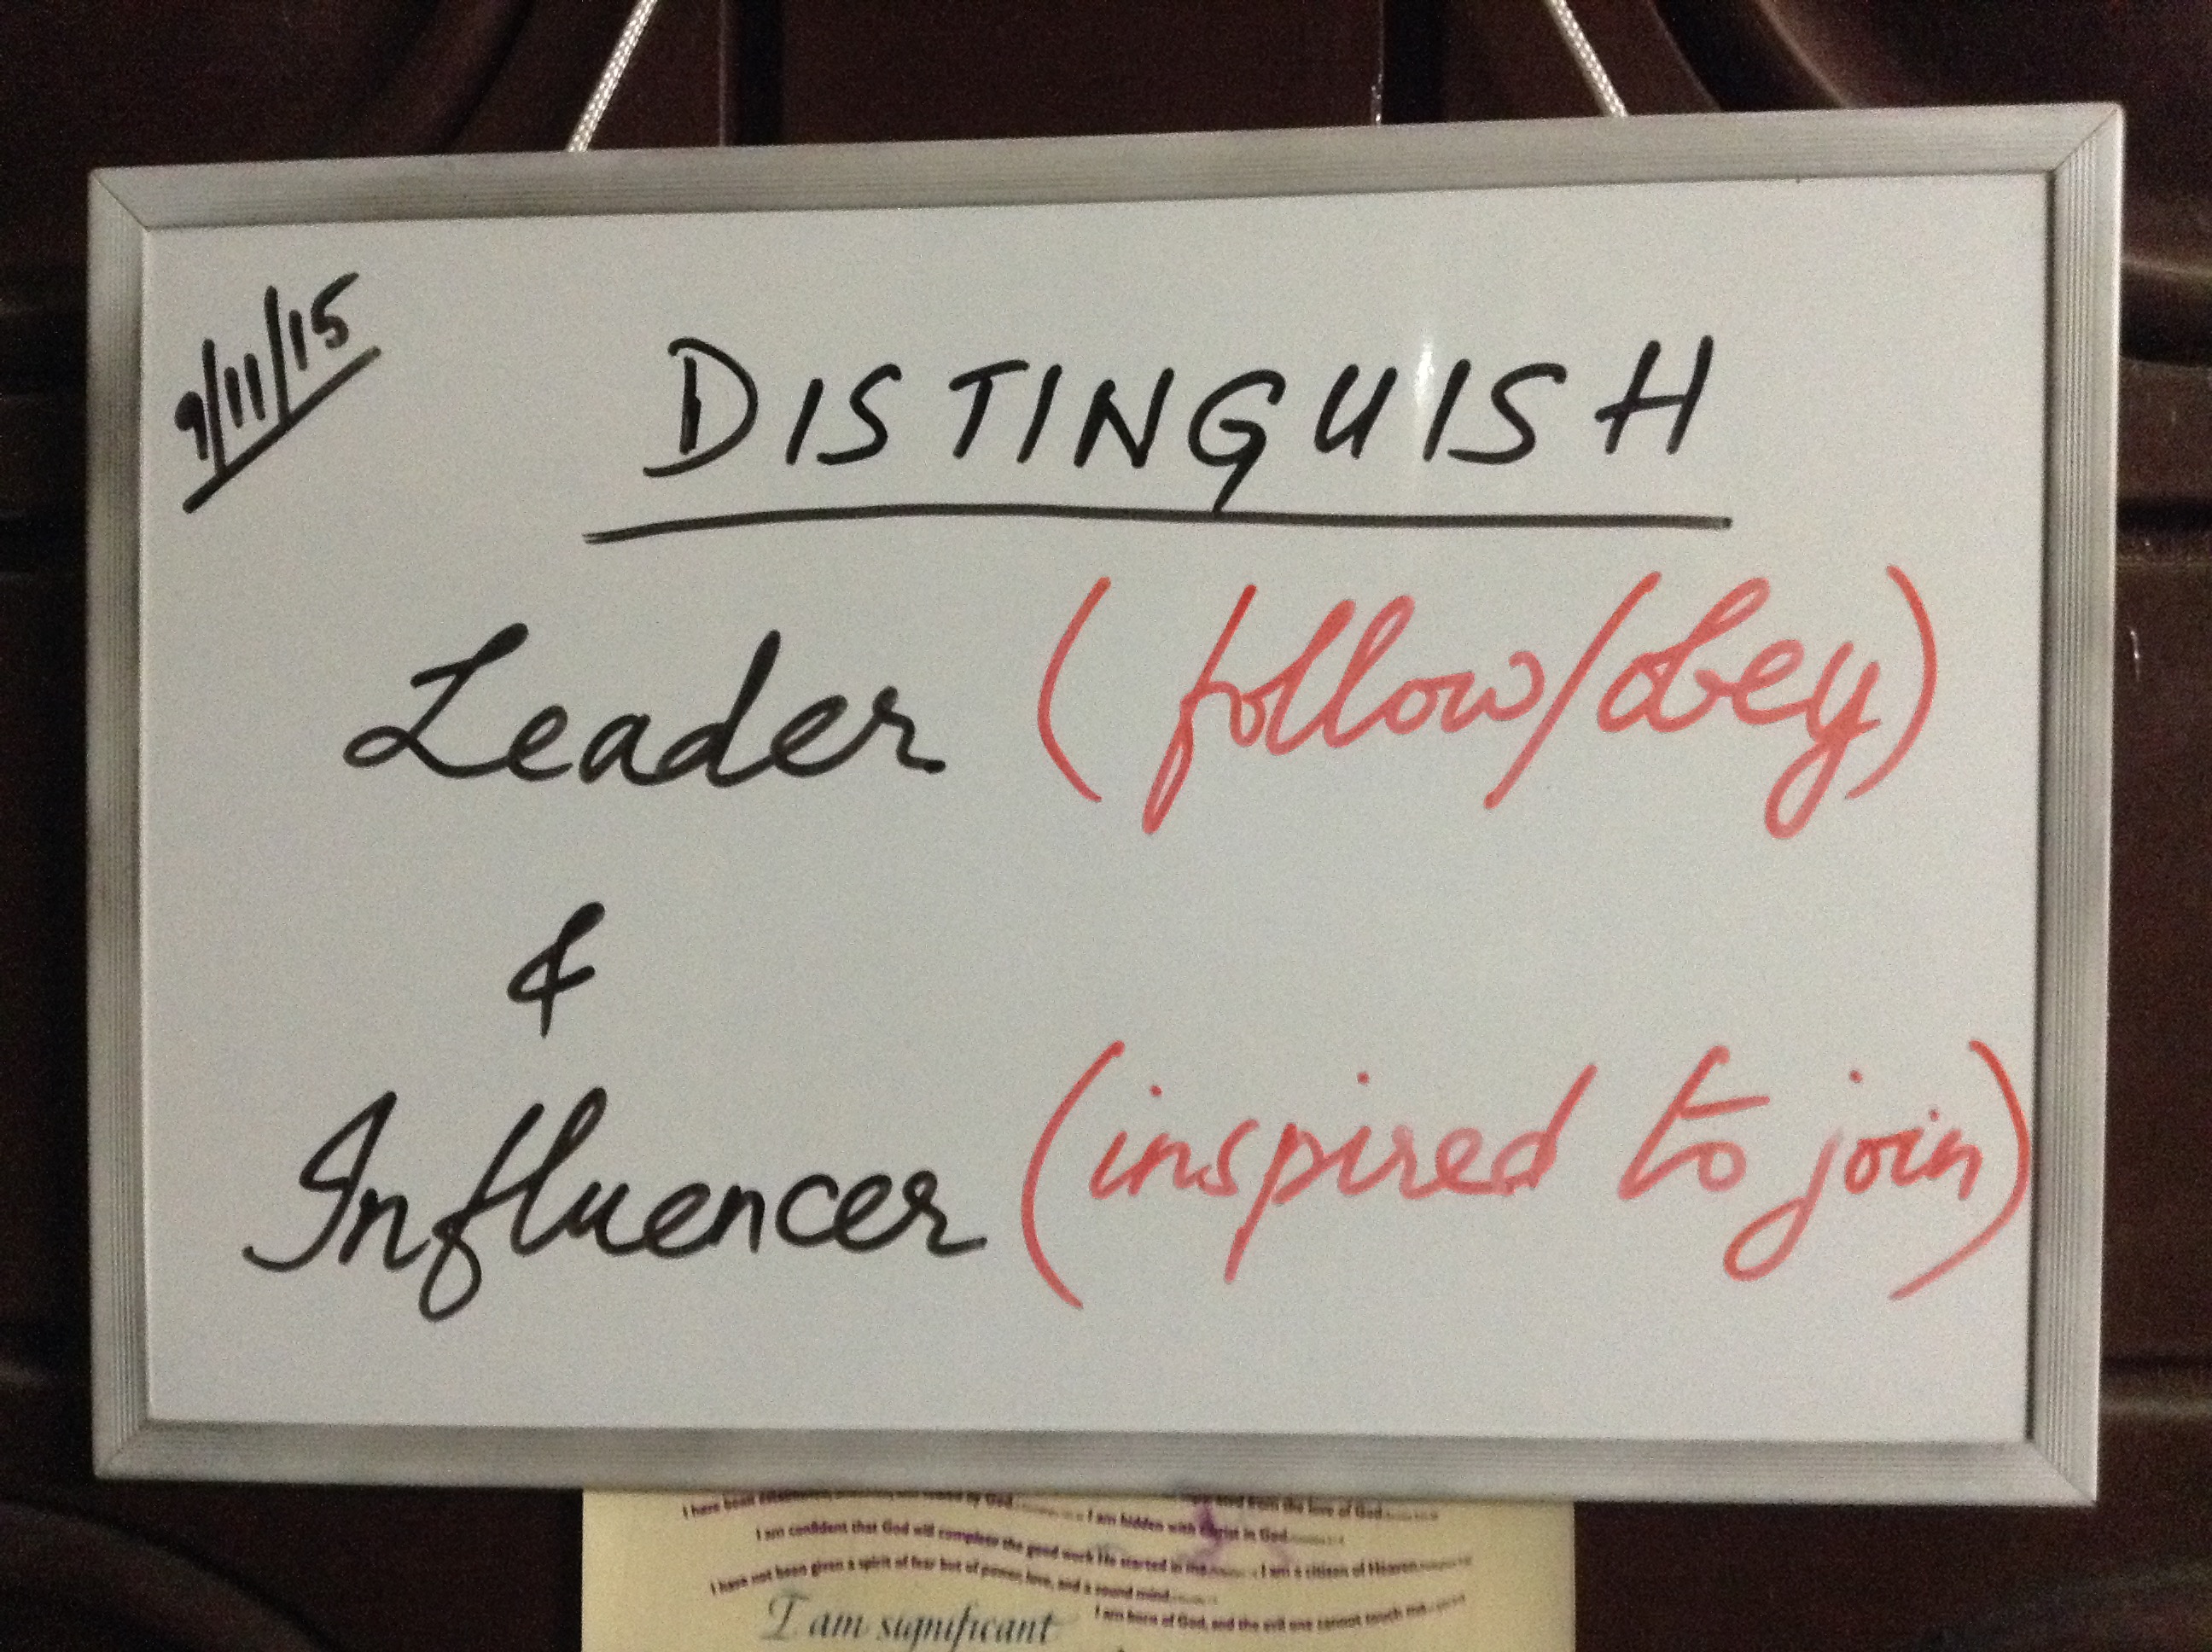 9/11/15
DISTINGUISH
Leader (follow/obey)
&
Influencer (inspired to join)
I have been by God from the love of God
I am hidden with Christ in God
I am confident that God will complete the good work He started in me I am a citizen of Heaven
I have not been given a spirit of fear but of power, love, and a sound mind
I am born of God, and the evil one cannot touch me
I am significant